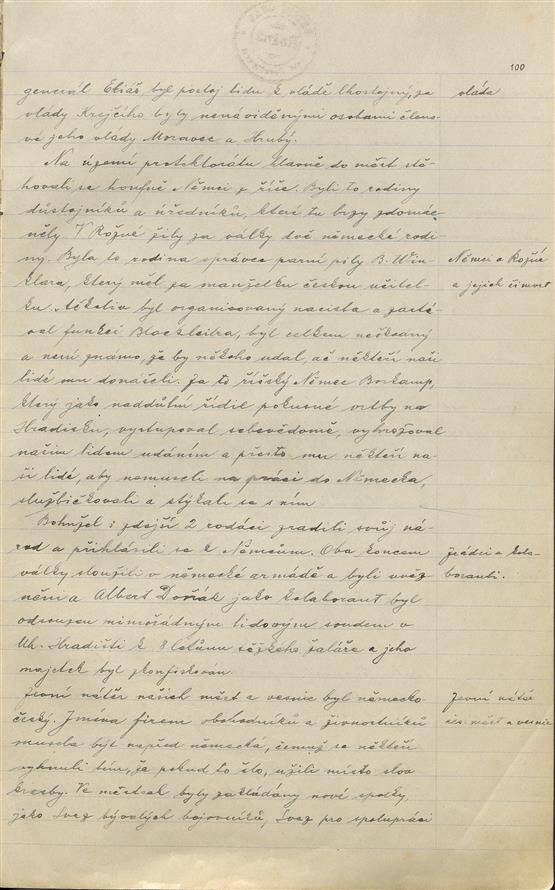 100
generál Eliáš byl postoj lidu k vládě lhostejný, za
vláda
vlády Krejčího byly nenáviděnými osobami členo-
vé jeho vlády Moravec a Hrubý.
Na území protektorátu hlavně do měst stě-
hovali se houfně Němci z říše. Byli to rodiny
důstojníků a úředníků, které tu brzy zdomác-
něly. V Rožné žily za války dvě německé rodi-
ny. Byla to rodina správce parní pily B. Win-
Němci v Rožné
klara, který měl za manželku českou učitel-
a jejich činnost
ku. Ačkoliv byl organisovaný nacista a zastá-
val funkci Blockleitra, byl celkem neškodný
a není známo, že by někoho udal, ač někteří naši
lidé mu donášeli. Za to říšský Němec Boskamp,
který jako naddůlní řídil pokusné vrtby na
Hradisku, vystupoval sebevědomě, vyhrožoval
našim lidem udáním a přesto mu někteří na-
ši lidé, aby nemuseli na práci do Německa,
služebičkovali a stýkali se s ním
Bohužel i zdejší 2 rodáci zradili svůj ná-
rod a přihlásili se k Němcům. Oba koncem
Zrádci a kola-
války sloužili v německé armádě a byli uvěz
boranti.
něni a Albert Dořák jako kolaborant byl
odsouzen mimořádným lidovým soudem v
Uh. Hradišti k 8 letům těžkého žaláře a jeho
majetek byl zkonfiskován.
Zevní nátěr našich měst a vesnic byl německo-
Zevní nátěr
český. Jména firem obchodníků a živnostníků
měst a vesnic
musela být napřed německá, čemuž se někteří
vyhnuli tím, že pokud to šlo, užili místo slov
kresby. Ve městech byly zakládány nové spolky,
jako Svaz bývalých bojovníků, Svaz pro spolupráci